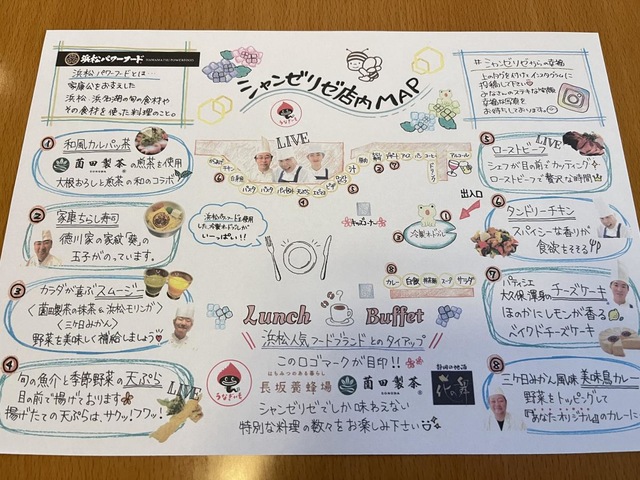 浜松パワーフード
浜松パワーフードとは…
家康公をお支えした
浜松・浜名湖の旬の食材や
その食材を使った料理のこと。
シャンゼリゼ店内MAP
うなぎいも
#シャンゼリゼからの幸福
上のタグを付けてインスタグラムに
投稿して下さい
みなさんのステキな笑顔
幸福な写真を
お待ちしております
① 和風カルパッ茶
菌田製茶 の煎茶を使用
大根おろしと煎茶の和のコラボ
② 家康ちらし寿司
徳川家の家紋「葵」の
五子がのっています。
③ カラダが喜ぶスムージー
〈菌田製茶の抹茶&浜松モリンガ〉
〈三ケ日みかん〉
野菜を美味しく補給しましょう
④ 旬の魚介と季節野菜の天ぷら
LIVE
目の前で揚げております
揚げたての天ぷらは、サクッ!フワッ!
LIVE
浜松パワーフードを使用
した冷製オードブルが
いーっぱい!!
出入口
冷製オードブル
アルコール
カレー 白飯 スープ サラダ
⑤ ローストビーフ
LIVE
シェフが目の前でカッティング
ローストビーフで贅沢な時間
⑥ タンドリーチキン
スパイシーな香りが
食欲をそそる
⑦ パティシエ
大久保渾身のチーズケーキ
ほのかにレモンが香る
ベイクドチーズケーキ
⑧ 三ケ日みかん風味 美味鳥カレー
野菜をトッピングして
『あなたオリジナル』のカレーに
Lunch Buffet
浜松人気フードブランドとのタイアップ
このロゴマークが目印!!
うなぎいも
はちみつのある暮らし
長坂養蜂場
菌田製茶
静岡の地海苔
シャンゼリゼでしか味わえない
特別な料理の数々をお楽しみ下さい